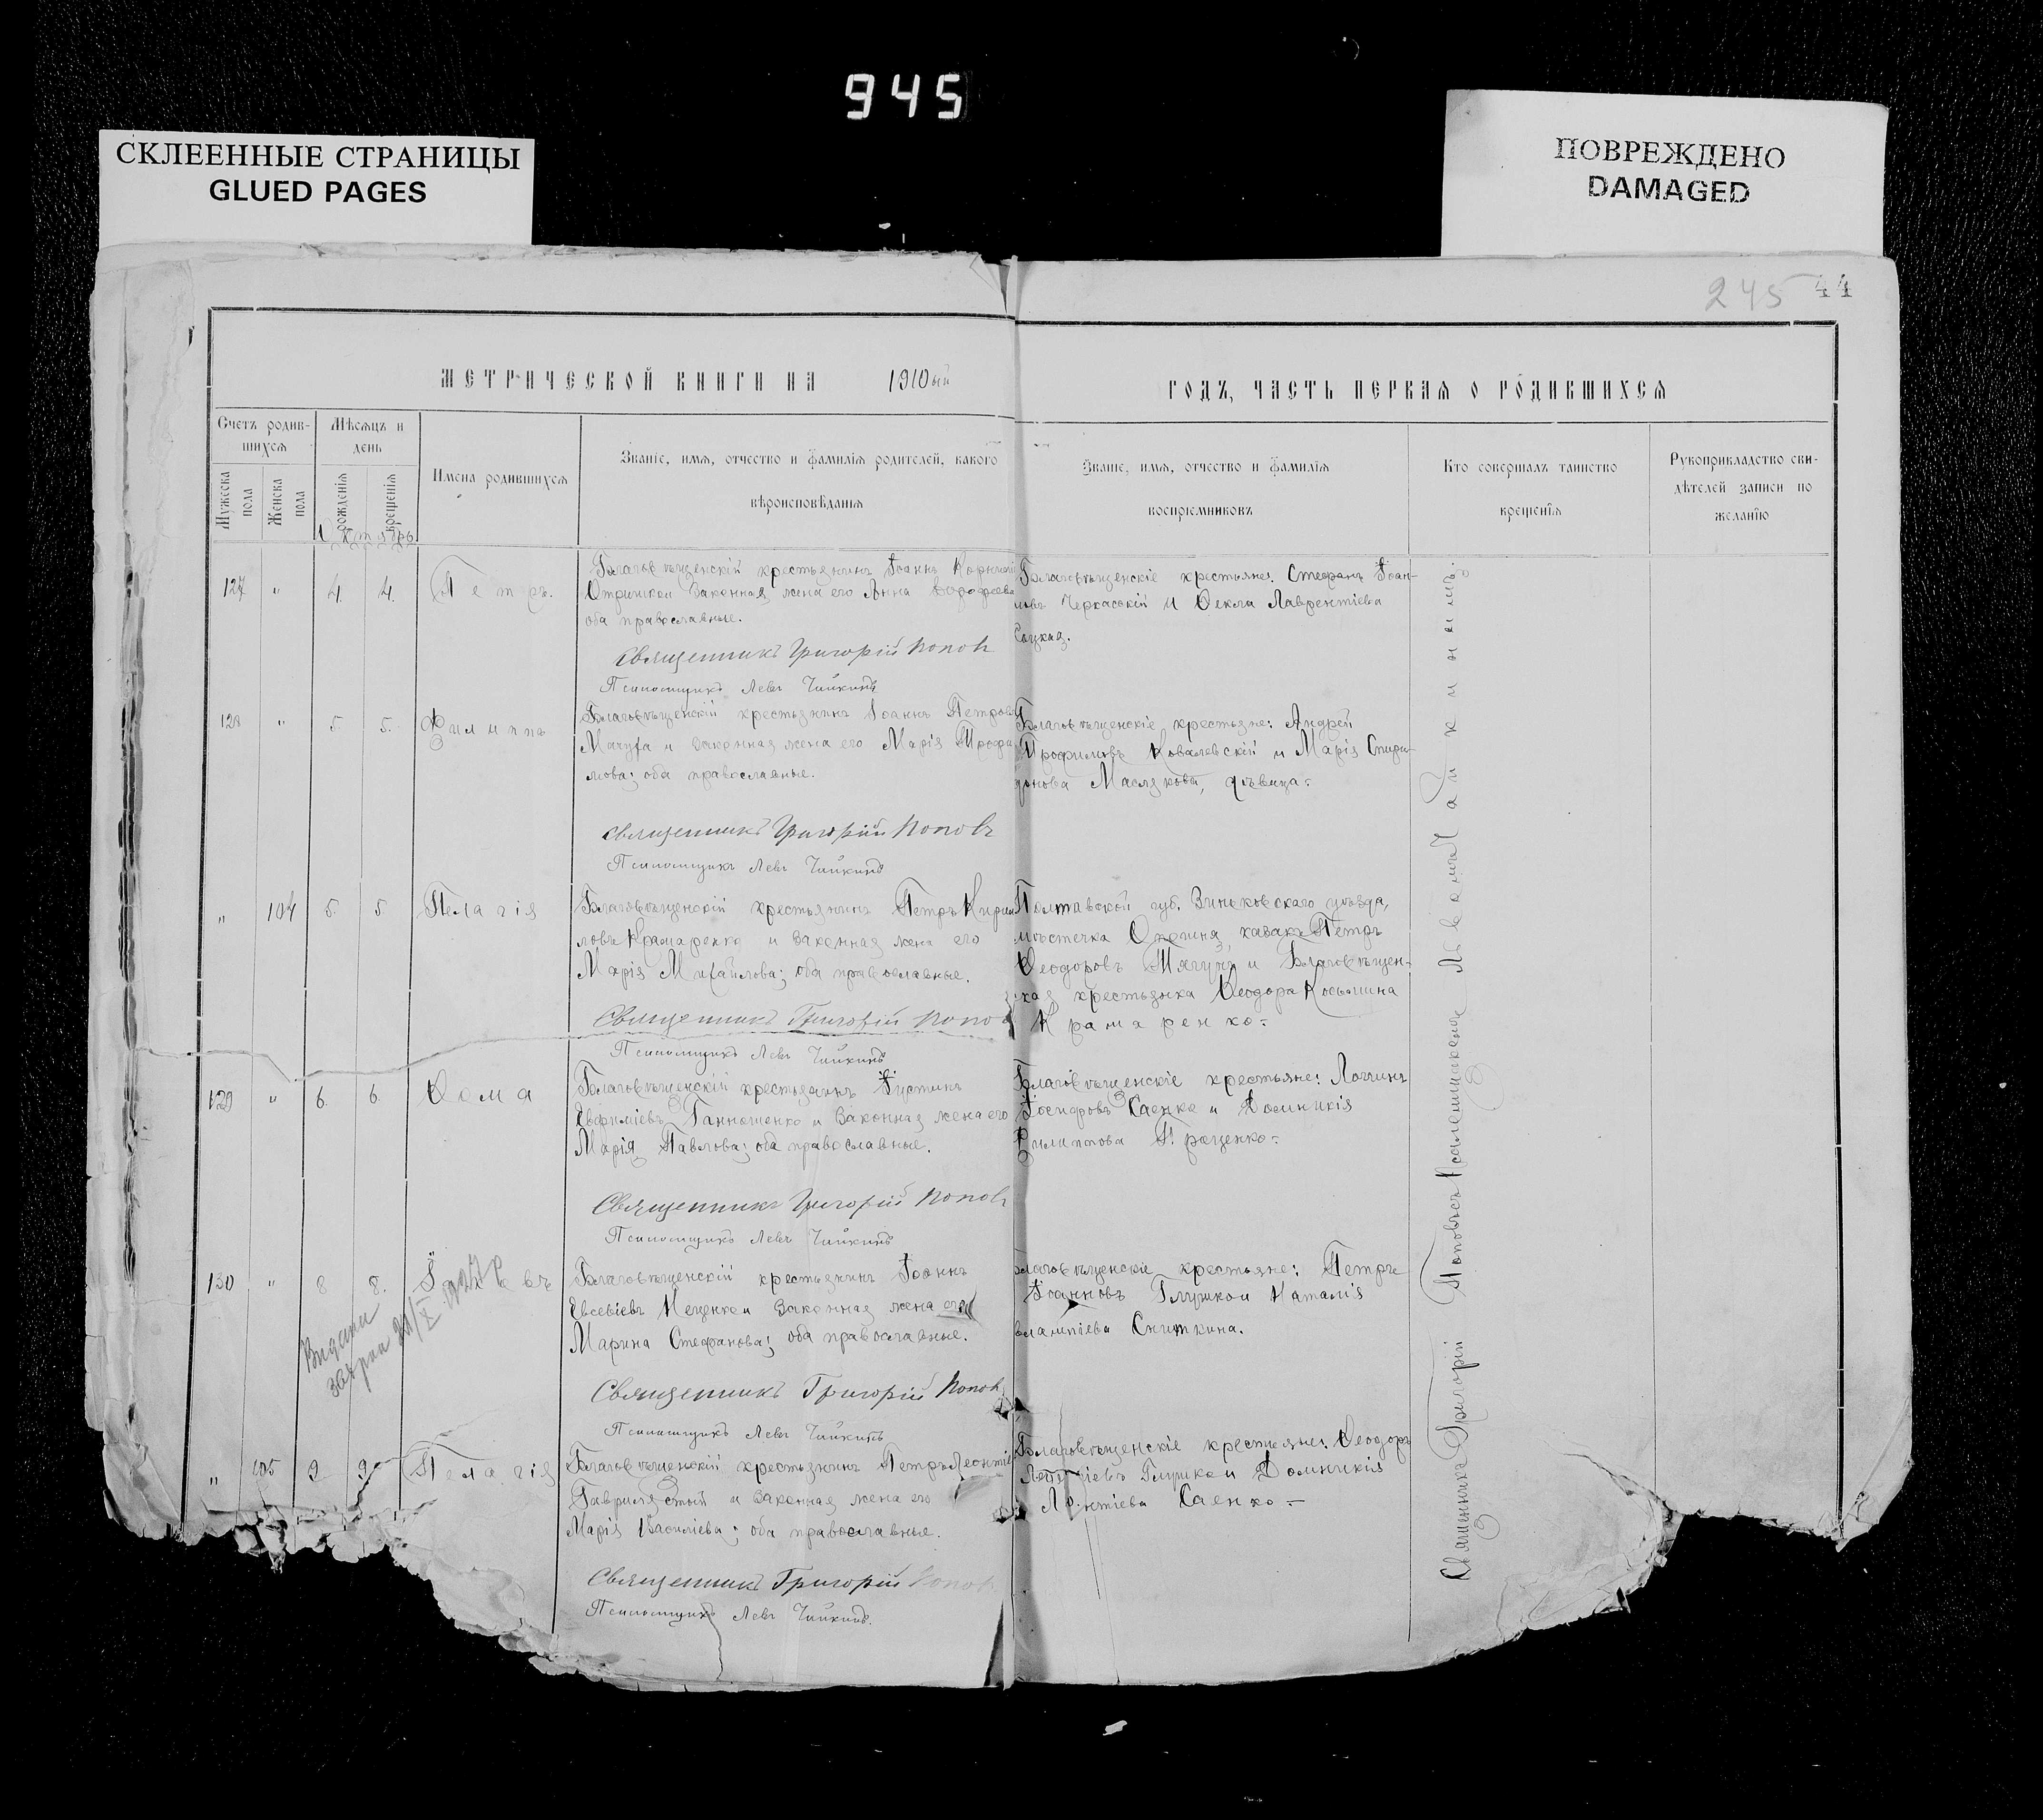 945
СКЛЕЕННЫЕ СТРАНИЦЫ
GLUED PAGES
ПОВРЕЖДЕНО
DAMAGED
245 44
МЕТРИЧЕСКОЙ КНИГИ НА 1910ый
ГОДЪ, ЧАСТЬ ПЕРВАЯ О РОДИВШИХСЯ
Счетъ родив-
шихся
Мужеска пола
Женска пола
Мѣсяцъ и
день
рожденія
крещенія
Октябрь
Имена родившихся
Званіе, имя, отчество и фамилія родителей, какого
вѣроисповѣданія
Званіе, имя, отчество и фамилія
воспріемниковъ
Кто совершалъ таинство
крещенія
Рукоприкладство сви-
дѣтелей записи по
желанію
127 " 4. 4. Петръ.
Благовѣщенскій крестьянинъ Іоаннъ
и законная жена его Анна
оба православные.
Священникъ Григорій Поповъ
Псаломщикъ Левъ Чайкинъ
Благовѣщенскіе крестьяне: Стефанъ Іоан-
новъ Черкаскій и Ѳекла Лаврентіева
128 " 5. 5. Филиппъ
Благовѣщенскій крестьянинъ Іоаннъ Петровъ
Мачуха и законная жена его Марія Трофи
мова; оба православные.
Священникъ Григорій Поповъ
Псаломщикъ Левъ Чайкинъ
Благовѣщенскіе крестьяне: Андрей
Трофимовъ Ковалевскій и Марія Спири-
донова Маслякова, дѣвица.
" 104 5. 5 Пелагія
Благовѣщенскій крестьянинъ Петръ Кирил
ловъ Крамаренко и законная жена его
Марія Михайлова; оба православные.
Священникъ Григорій Попов
Псаломщикъ Левъ Чайкинъ
Полтавской губ. Зиньковскаго уѣзда,
мѣстечка Опошня, казакъ Петръ
Ѳеодоровъ Тягунъ и Благовѣщен-
ская крестьянка Ѳеодора Косьмина
Крамаренко.
129 " 6. 6. Ѳома
Благовѣщенскій крестьянинъ Іустинъ
Евфиміевъ и законная жена его
Марія Павлова; оба православные.
Священникъ Григорій Поповъ
Псаломщикъ Левъ Чайкинъ
Благовѣщенскіе крестьяне: Логгинъ
Іосифовъ Саенко и Домникія
Филиппова
130 " 8 8.
Благовѣщенскій крестьянинъ Іоаннъ
Евсевіевъ и законная жена его
Марина Стефанова; оба православные.
Священникъ Григорій Поповъ
Псаломщикъ Левъ Чайкинъ
Благовѣщенскіе крестьяне: Петръ
Іоанновъ Глушко и Наталія
Сниткина.
" 105 9 9 Пелагія
Благовѣщенскій крестьянинъ Петръ Леонтіе
и законная жена его
Марія Василіева; оба православные.
Священникъ Григорій Поповъ
Псаломщикъ Левъ Чайкинъ.
Благовѣщенскіе крестьяне: Ѳеодоръ
Глушко и Домникія
Саенко
Священникъ Григорій Поповъ съ Псаломщикомъ Львомъ Чайкинымъ.